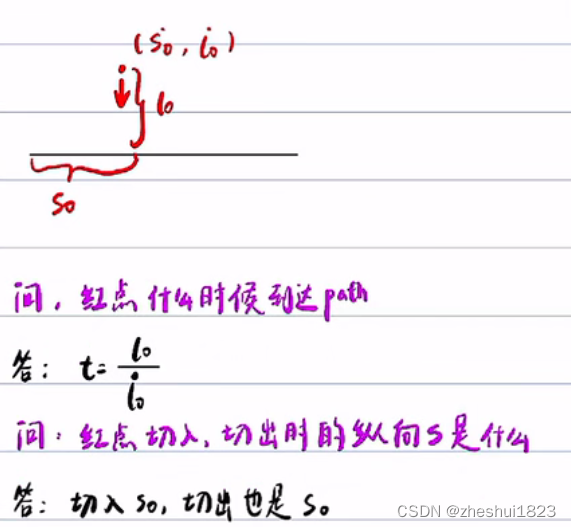 (ṡ₀, l̇₀)
l₀
s₀
问，红点什么时候到达path
答：t= l₀/l̇₀
问：红点切入，切出时的纵向s是什么
答：切入s₀，切出也是s₀
CSDN @zheshui1823